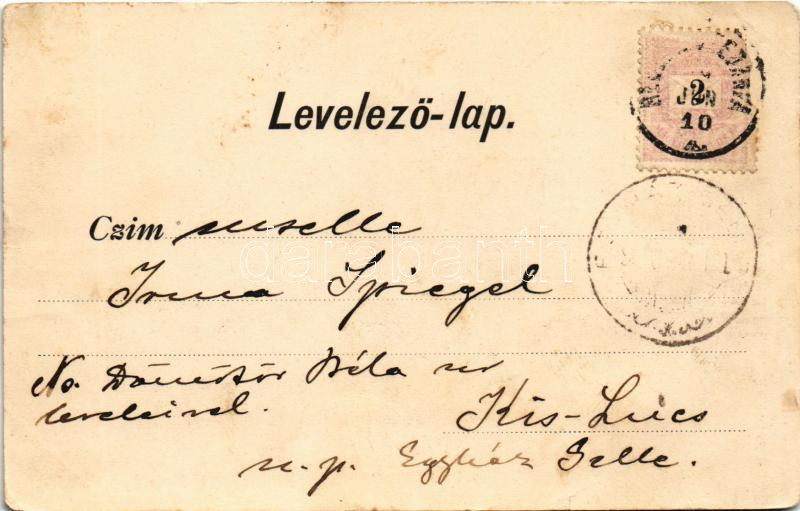 2
JUN
10
Levelező-lap.
Czim mselle
Irma Spiegel
No. Dömötör Béla ur
leveleivel.
Kis-Lúcs
u. p. Egyház Gelle.
darabanth